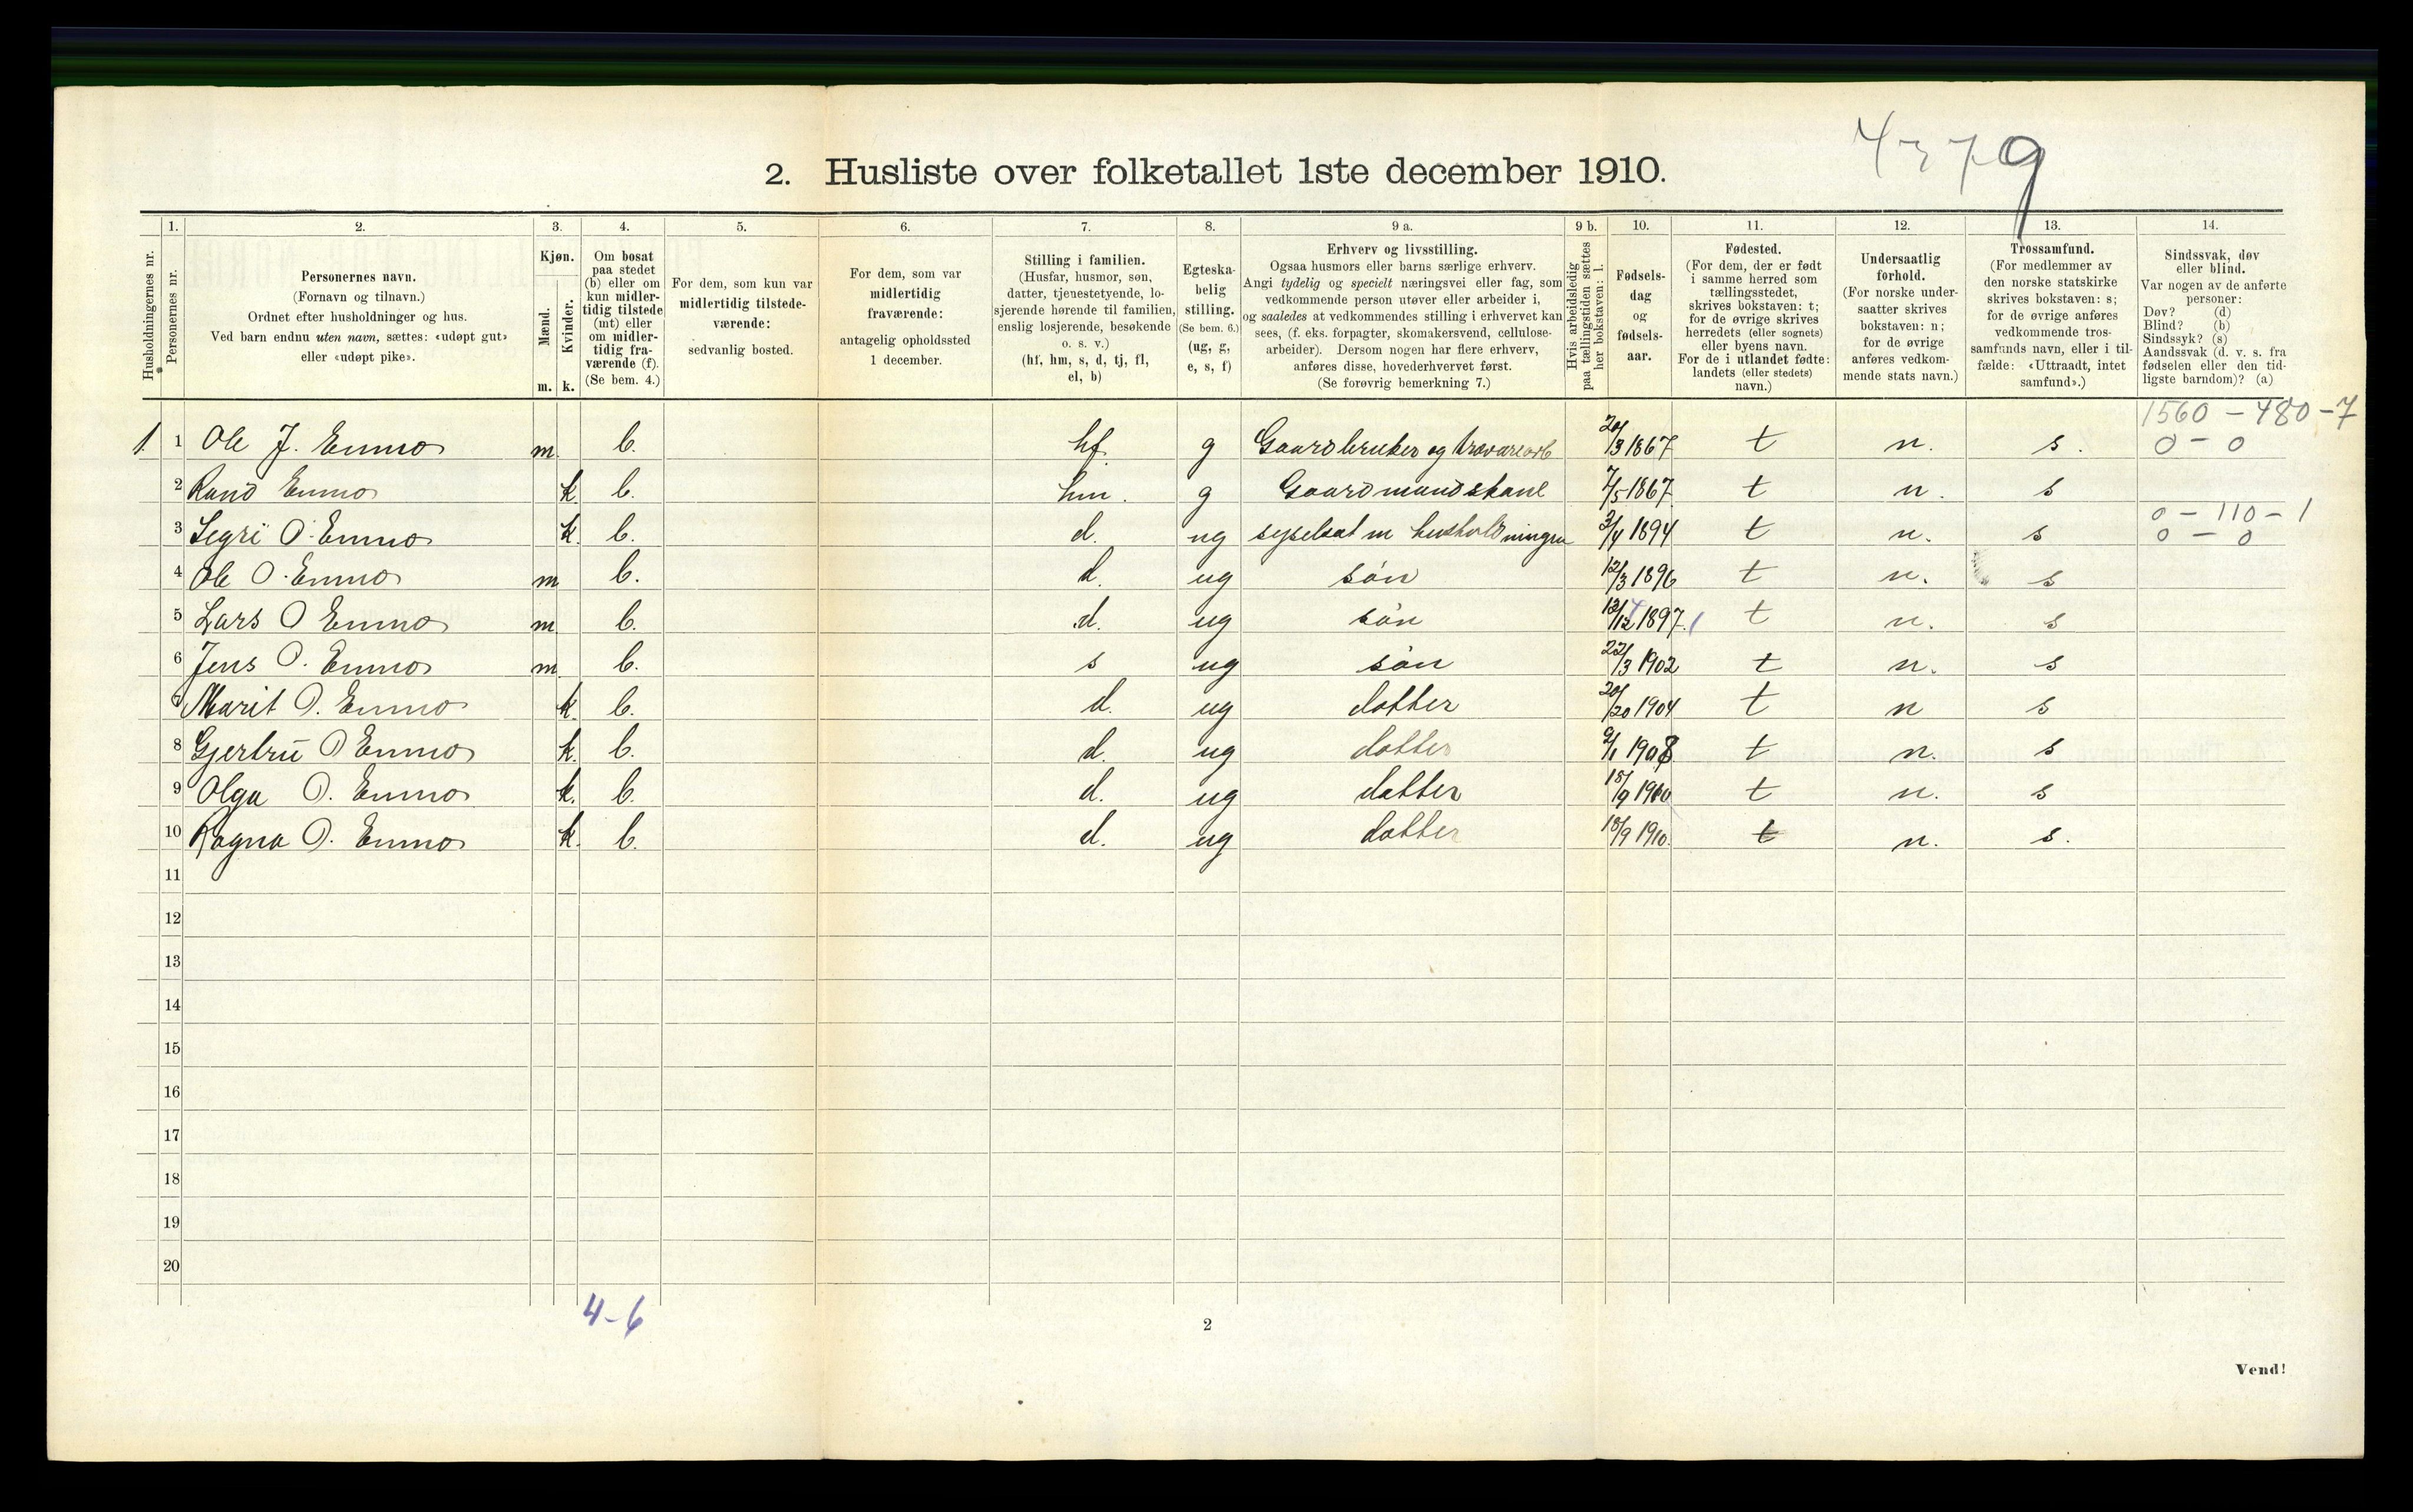 4379
2. Husliste over folketallet 1ste december 1910.
Husholdningernes nr.
1.
Personernes nr.
2.
Personernes navn.
(Fornavn og tilnavn.)
Ordnet efter husholdninger og hus.
Ved barn endnu uten navn, sættes: «udøpt gut»
eller «udøpt pike».
3.
Kjøn.
Mænd.
Kvinder.
m. k.
4.
Om bosat
paa stedet
(b) eller om
kun midler-
tidig tilstede
(mt) eller
om midler-
tidig fra-
værende (f).
(Se bem. 4.)
5.
For dem, som kun var
midlertidig tilstede-
værende:
sedvanlig bosted.
6.
For dem, som var
midlertidig
fraværende:
antagelig opholdssted
1 december.
7.
Stilling i familien.
(Husfar, husmor, søn,
datter, tjenestetyende, lo-
sjerende hørende til familien,
enslig losjerende, besøkende
o. s. v.)
(hf, hm, s, d, tj, fl,
el, b)
8.
Egteska-
belig
stilling.
(Se bem. 6.)
(ug, g,
e, s, f)
9 a.
Erhverv og livsstilling.
Ogsaa husmors eller barns særlige erhverv.
Angi tydelig og specielt næringsvei eller fag, som
vedkommende person utøver eller arbeider i,
og saaledes at vedkommendes stilling i erhvervet kan
sees, (f. eks. forpagter, skomakersvend, cellulose-
arbeider). Dersom nogen har flere erhverv,
anføres disse, hovederhvervet først.
(Se forøvrig bemerkning 7.)
9 b.
Hvis arbeidsledig
paa tællingstiden sættes
her bokstaven: l.
10.
Fødsels-
dag
og
fødsels-
aar.
11.
Fødested.
(For dem, der er født
i samme herred som
tællingsstedet,
skrives bokstaven: t;
for de øvrige skrives
herredets (eller sognets)
eller byens navn.
For de i utlandet fødte:
landets (eller stedets)
navn.)
12.
Undersaatlig
forhold.
(For norske under-
saatter skrives
bokstaven: n;
for de øvrige
anføres vedkom-
mende stats navn.)
13.
Trossamfund.
(For medlemmer av
den norske statskirke
skrives bokstaven: s;
for de øvrige anføres
vedkommende tros-
samfunds navn, eller i til-
fælde: «Uttraadt, intet
samfund».)
14.
Sindssvak, døv
eller blind.
Var nogen av de anførte
personer:
Døv? (d)
Blind? (b)
Sindssyk? (s)
Aandssvak (d. v. s. fra
fødselen eller den tid-
ligste barndom)? (a)
1560 - 480 - 7
1 1 Ole J. Enmo m b. hf. g Gaardbruker og trævarearb 20/3 1867 t n. s. 0 - 0
2 Rand Enmo k b. hm. g Gaardmandskone 7/5 1867 t n. s
0 - 110 - 1
3 Segri O. Enmo k. b. d. ug syselsat m husholdningen 3/4 1894 t n. s 0 - 0
4 Ole O. Enmo m b. d. ug søn 12/3 1896 t n. s
5 Lars O Enmo m b. d. ug søn 12/12 1897. t n. s
6 Jens O. Enmo m b. s ug søn 22/3 1902 t n. s
7 Marit O. Enmo k. b. d. ug datter 20/20 1904 t n s
8 Gjertru O Enmo k. b. d. ug datter 9/1 1908 t n. s
9 Olga O. Enmo k. b. d. ug datter 18/9 1910 t n. s
10 Ragna O. Enmo k. b. d. ug datter 18/9 1910. t n. s.
11
12
13
14
15
16
17
18
19
20
4-6
2
Vend!